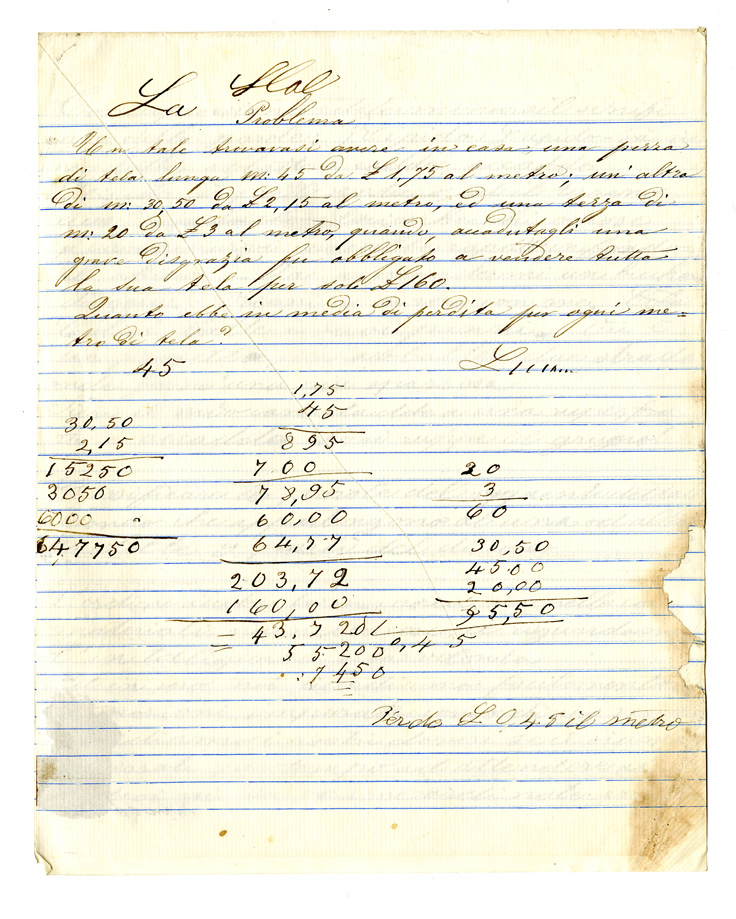 La
Problema
Un tale trovavasi avere in casa una pezza
di tela lunga m: 45 da £ 1,75 al metro; un' altra
di m: 30,50 da £ 2,15 al metro, ed una terza di
m: 20 da £ 3 al metro, quando, accadutagli una
grave disgrazia fu obbligato a vendere tutta
la sua tela per sole £ 160.
Quanto ebbe in media di perdita per ogni me=
tro di tela?
45
1,75
45
895
7 00
7 8,95
60,00
64,77
203,72
160,00
= 43,720
55200 0,45
7450
30,50
2,15
15250
3050
6000
64,7750
20
3
60
30,50
45.00
20,00
95,50
Perdo £. 0,45 il metro